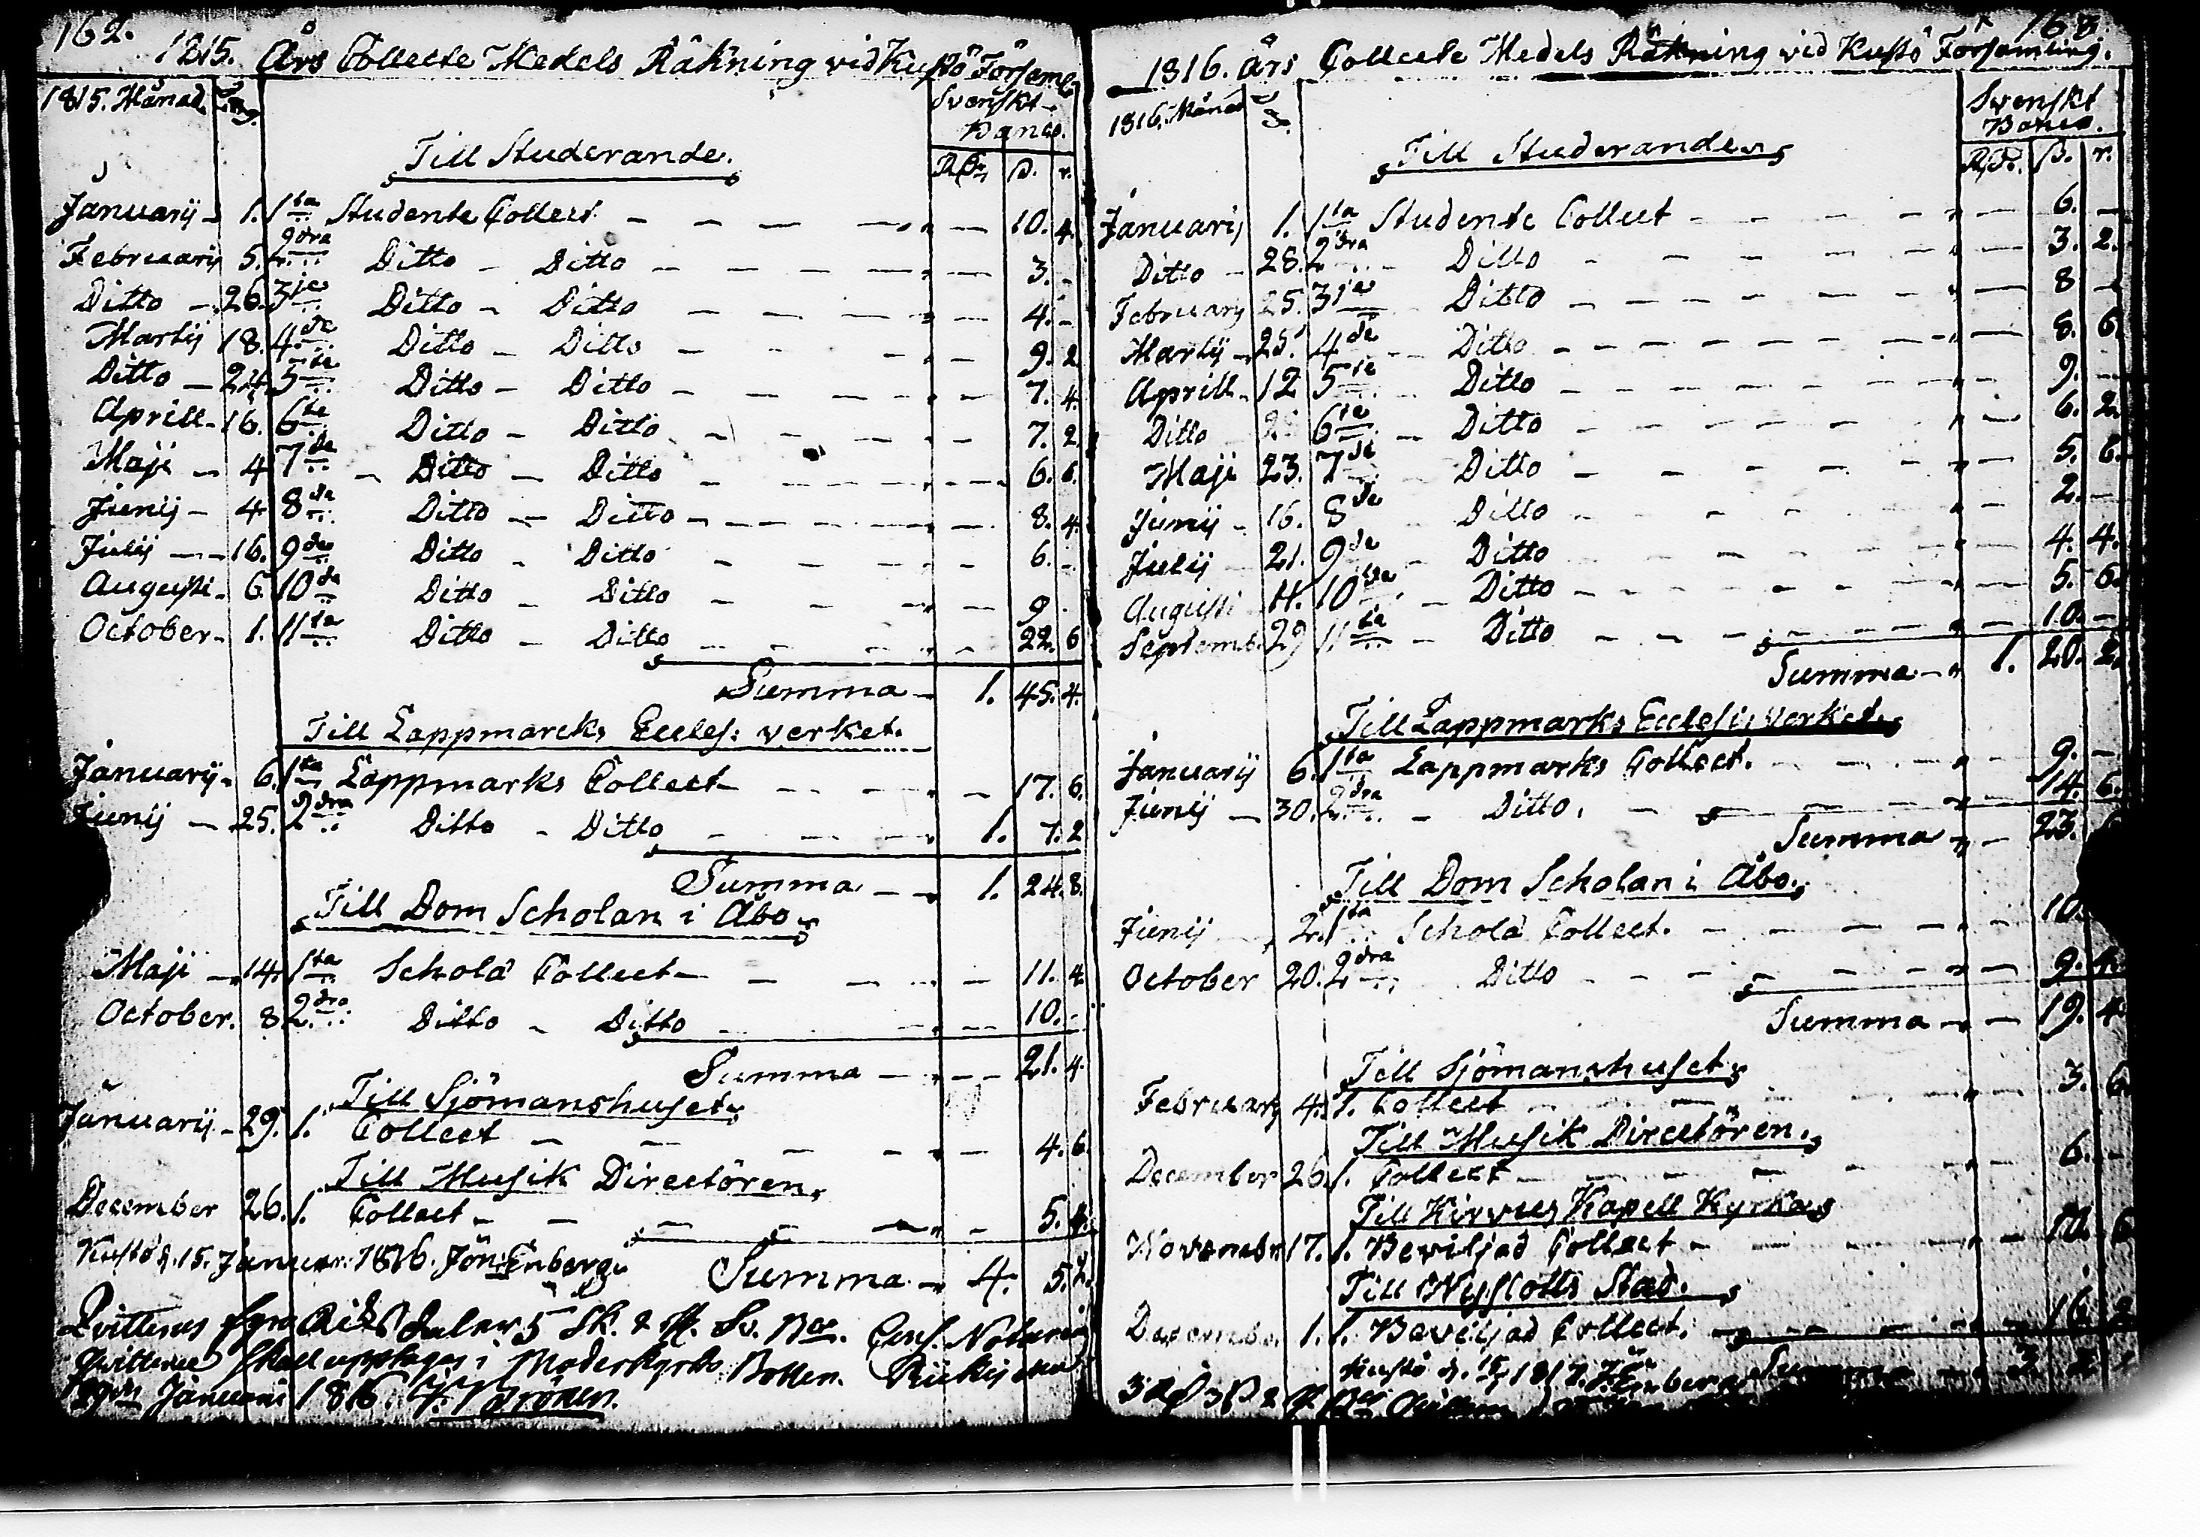 162.
1815. Års Collecte Medels Räkning vid Kustö Församl
1815. Månad Svenskt Banco.
Till Studerande. Rd. ß. r.
Januarij 1. 1ta Studente Collect 10. 4.
Februarij 5. 2dra Ditto Ditto 3. -
Ditto 26. 3je Ditto Ditto 4. -
Martij 18. 4de Ditto Ditto 9. 2
Ditto 24. 5te Ditto Ditto 7. 4.
Aprill 16. 6te Ditto Ditto 7. 2.
Maji 4 7de Ditto Ditto 6. 6.
Junij 4 8de Ditto Ditto 8. 4.
Julij 16. 9de Ditto Ditto 6. -
Augusti 6 10de Ditto Ditto 9
October 1. 11ta Ditto Ditto 22. 6
Summa 1. 45. 4.
Till Lappmarcks Eccles: verket.
Januarij 6. 1ta Lappmarks Collect 17. 6.
Junij 25. 2dra Ditto Ditto 1. 7. 2
Summa 1. 24. 8.
Till Dom Scholan i Åbo
Maji 14. 1ta Schola Collect 11. 4
October. 8 2dra Ditto Ditto 10. -
Summa 21. 4
Till Sjömanshuset
Januarij 29. 1. Collect 4. 6
Till Musik Directören
December 26. 1. Collect 5. 4.
Kustö d. 15. Januar: 1816. Jön: Enberg Summa 4. 5. 2.
Qvitteras fyra Riks daler 5 Sk. 2 Sv. Bco.
Qvittence skall upptages i Moderkyrko Boken.
Januari 1816.
168
1816. Års Collecte Medels Räkning vid Kustö Församling.
1816. Månad Svenskt Banco.
Till Studerande Rd. ß. r.
Januarij 1. 1ta Studente Collect 6. -
Ditto 28. 2dra Ditto 3. 2.
Februarij 25. 3je Ditto 8 -
Martij 25. 4de Ditto 8. 6.
Aprill 12 5te Ditto 9. -
Ditto 6te Ditto 6. 2.
Maji 23. 7de Ditto 5. 6.
Junij 16. 8de Ditto 2. -
Julij 21. 9de Ditto 4. 4.
Augusti 11. 10de Ditto 5. 6.
Septemb. 29 11ta Ditto 10. -
Summa 1. 20. 2.
Till Lappmarks Eccless: verket
Januarij 6. 1ta Lappmarks Collect. 9. -
Junij 30. 2dra Ditto. 14. 6.
Summa 23.
Till Dom Scholan i Åbo.
Junij 2. 1ta Schola Collect. 10.
October 20. 2dra Ditto 9. 4.
Summa 19. 4.
Till Sjömanshuset
Februarij 4. 1. Collect 3. 6
Till Musik Directören.
December 26. 1. Collect 6. -
Till Kirvus Kapell Kyrka
Novemb. 17. 1. Beviljad Collect 6
Till Nyslotts Stad.
Decemb. 1. 1. Beviljad Collect. 16. 2
Kustö d. 1817. Enberg Summa 3